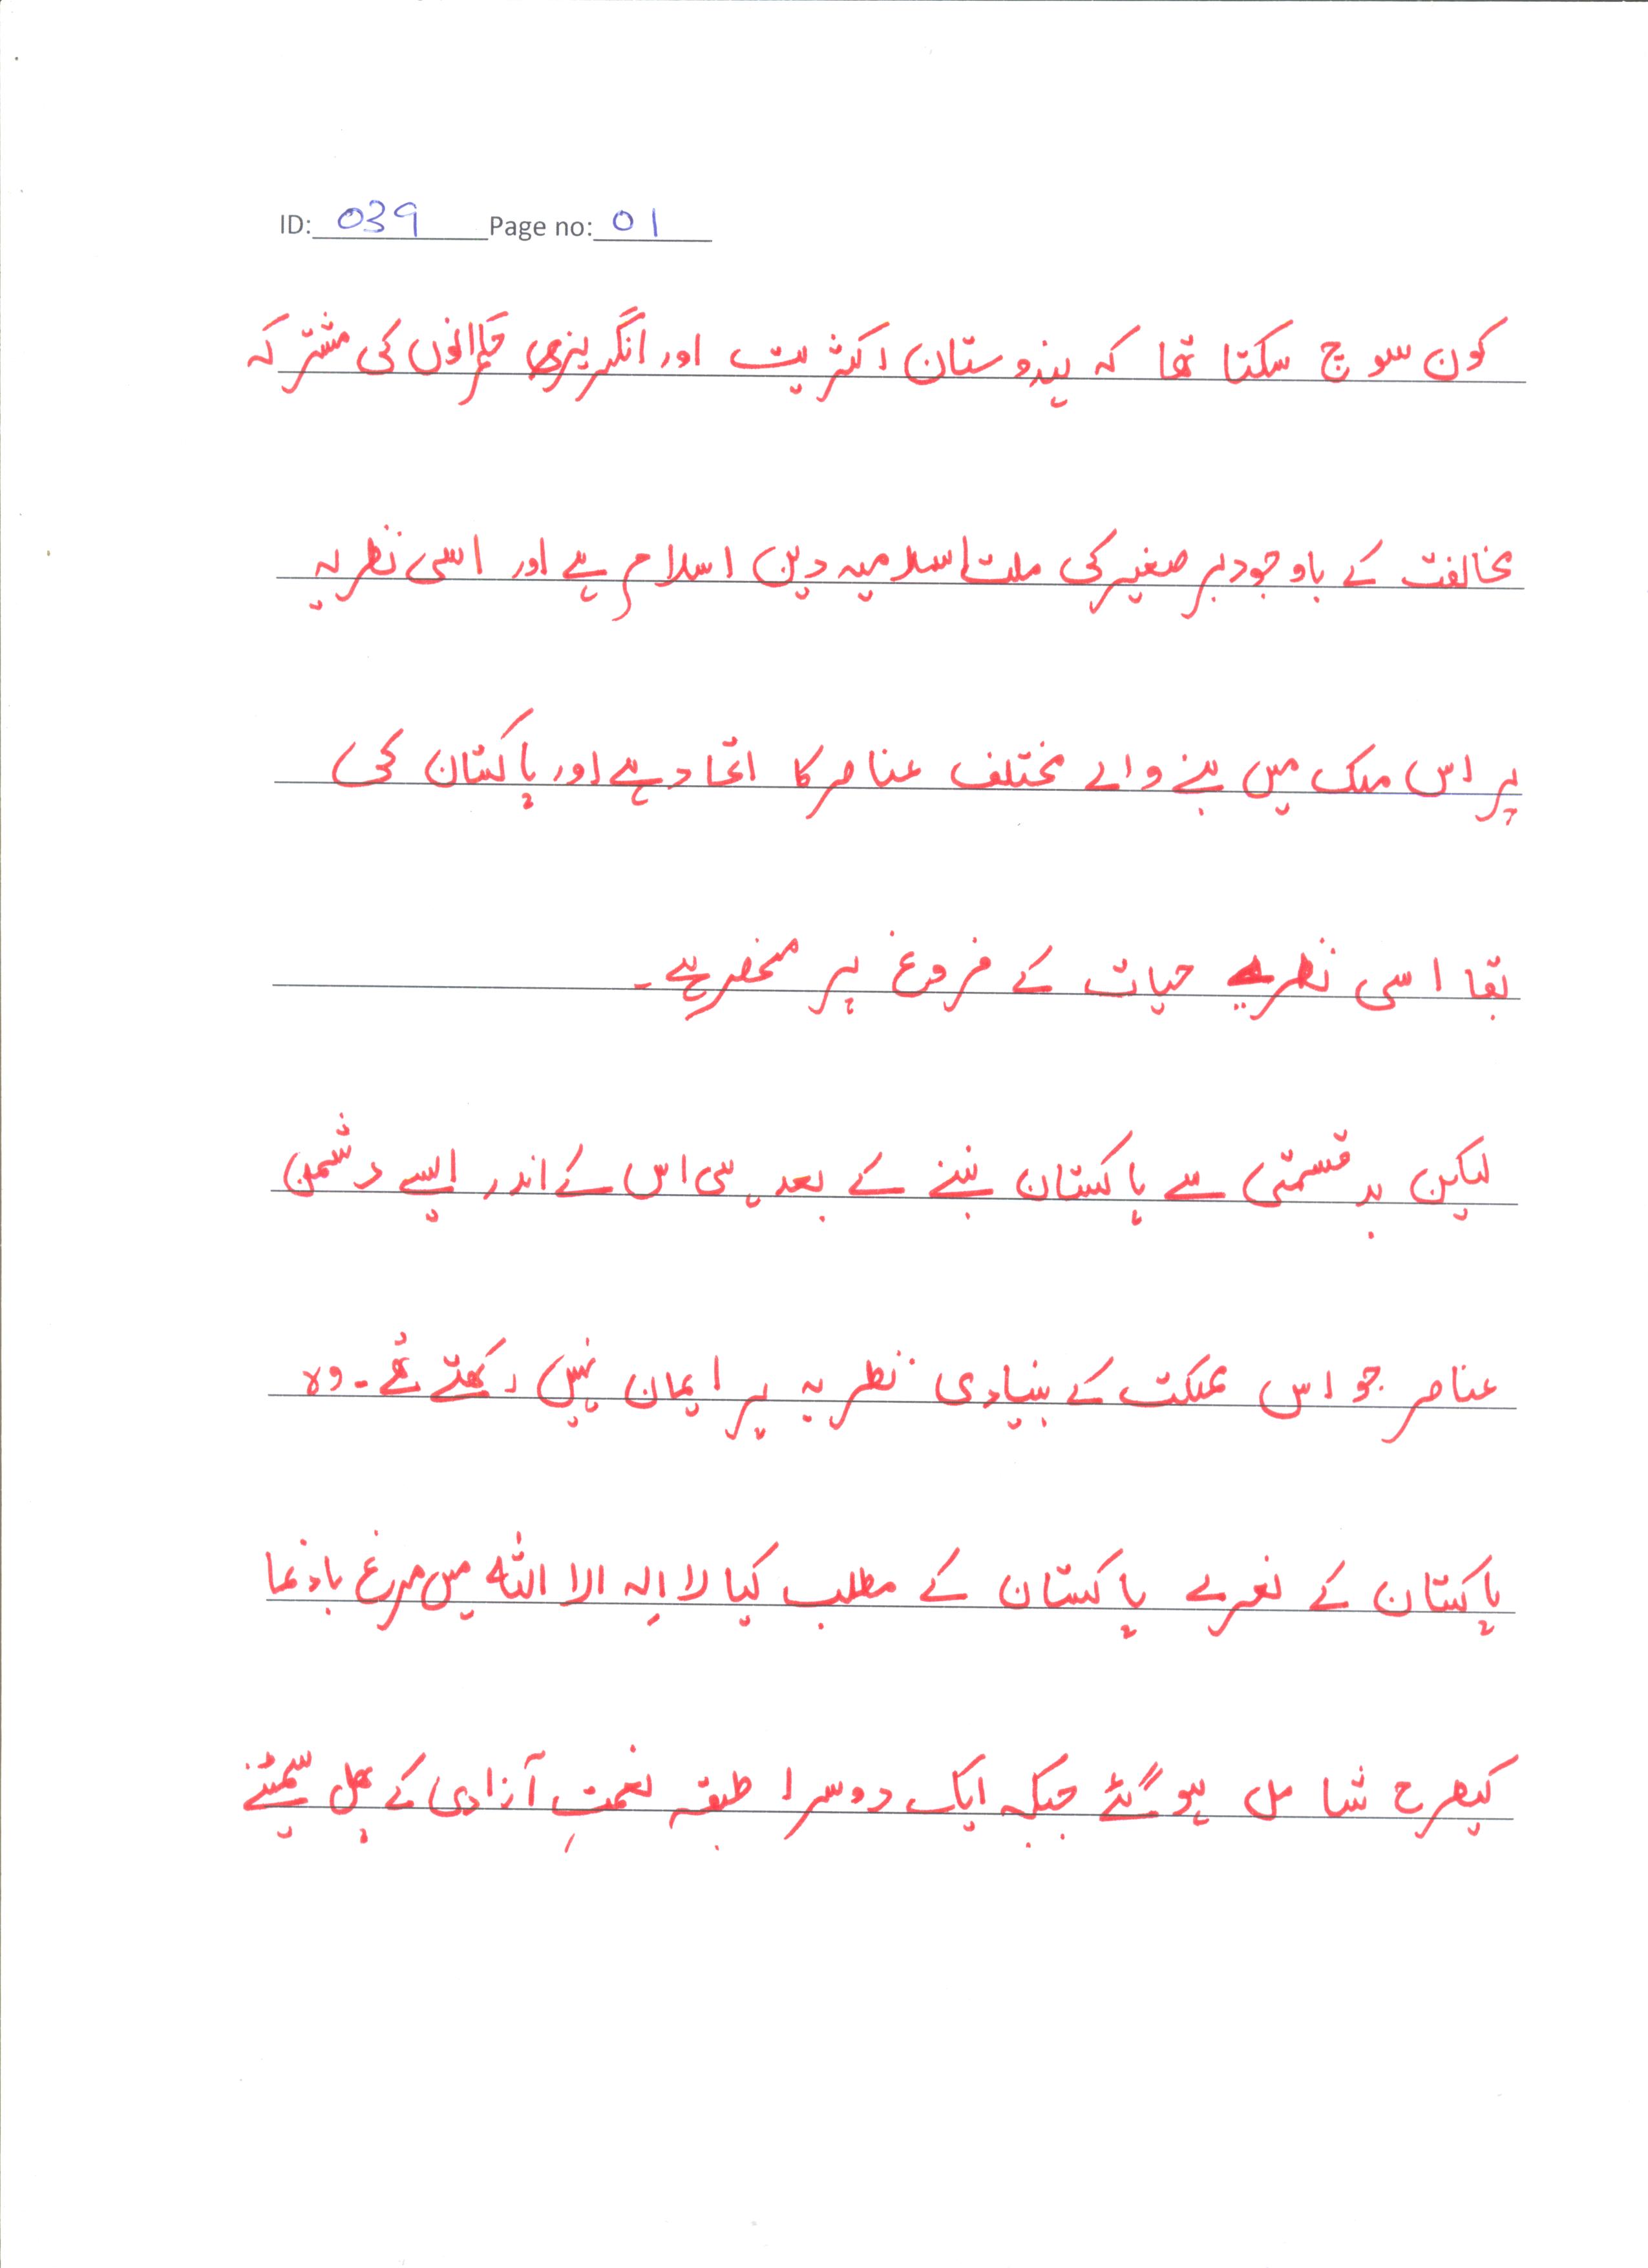 ID: 039 Page no: 01
کون سوچ سکتا تھا کہ ہندوستان اکثریت اور انگریزی حکمرانوں کی مشترکہ
مخالفت کے باوجود برصغیر کی ملت اسلامیہ دین اسلام ہے اور اسی نظریہ
پر اس ملک میں بسنے والے مختلف عناصر کا اتحاد ہے اور پاکستان کی
بقا اسی نظریے حیات کے فروغ پر منحصر ہے۔
لیکن بدقسمتی سے پاکستان بننے کے بعد ہی اس کے اندر ایسے دشمن
عناصر جو اس مملکت کے بنیادی نظریہ پر ایمان نہیں رکھتے تھے۔ وہ
پاکستان کے نعرے پاکستان کے مطلب کیا لا الہ الا اللہ میں مرغ بادنما
کیطرح شامل ہو گئے جبکہ ایک دوسرا طبقہ نعمتِ آزادی کے پھل سمیٹنے